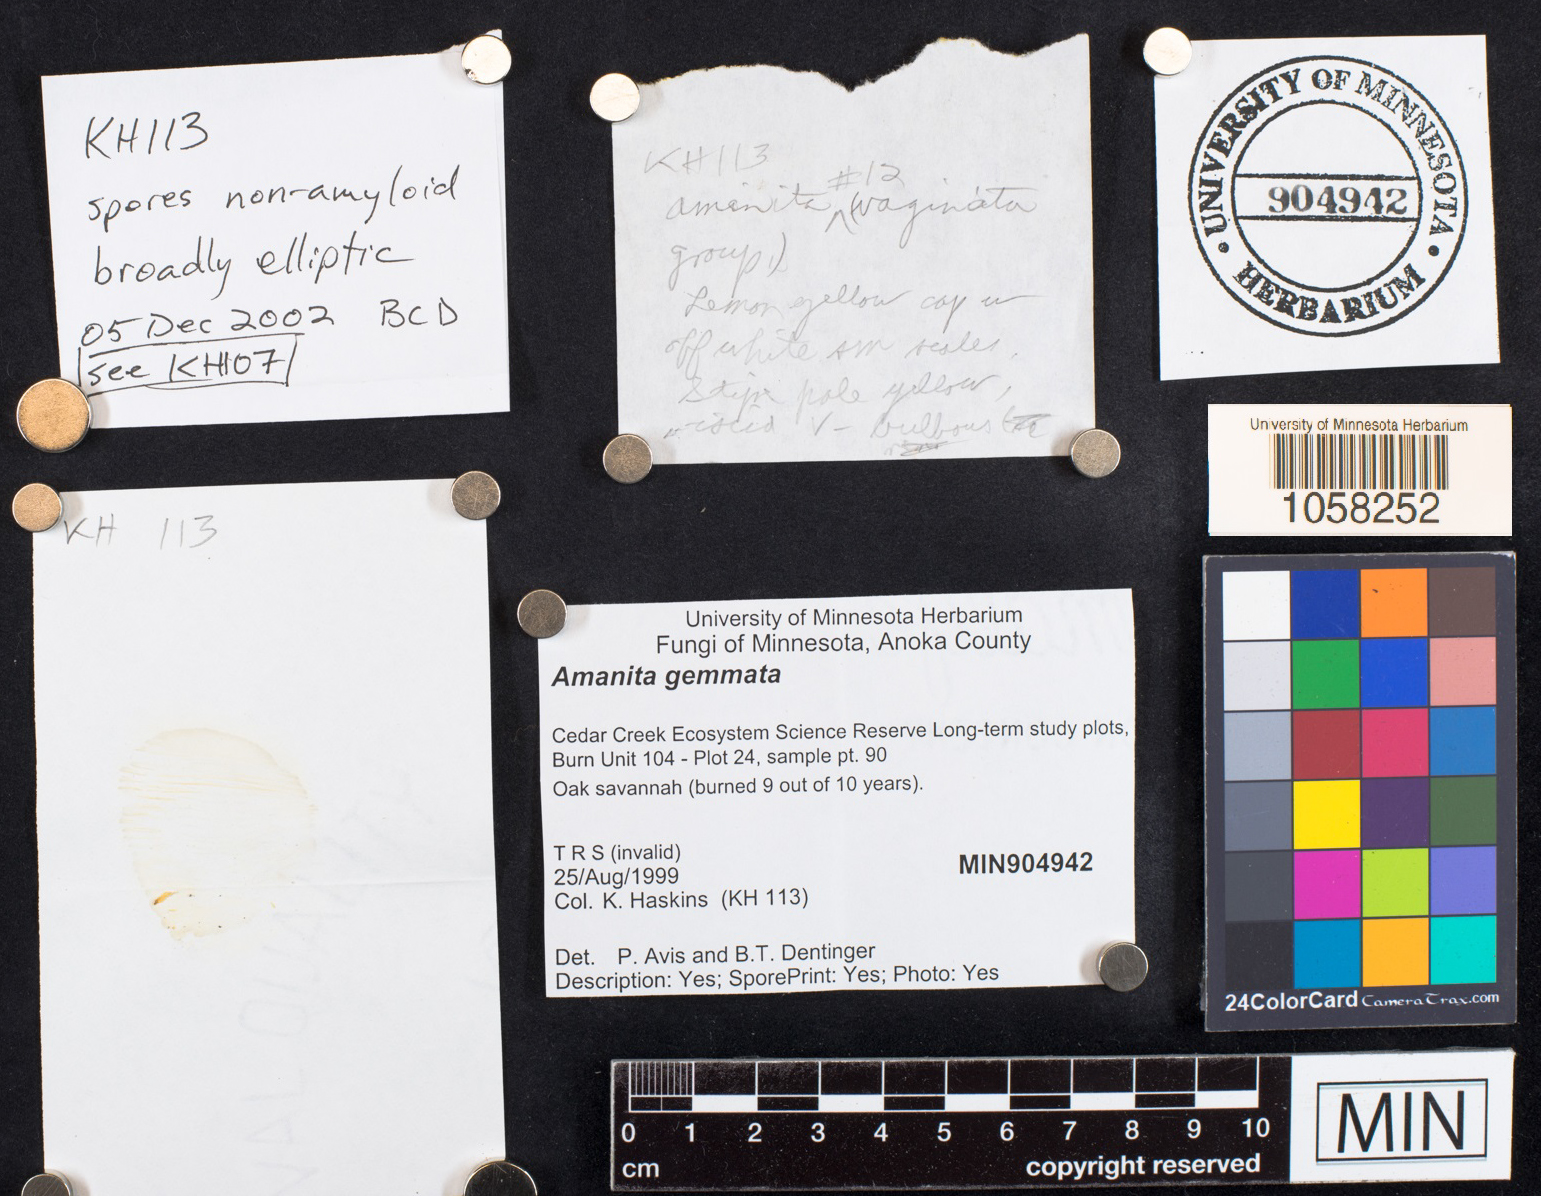 KH113
spores non-amyloid
broadly elliptic
05 Dec 2002 BCD
see KH107
KH113
#12
amanita (vaginata
group)
Lemon yellow cap w
off white sm scales.
Stipe pale yellow,
V- bulbous
UNIVERSITY OF MINNESOTA
904942
HERBARIUM
University of Minnesota Herbarium
1058252
KH 113
University of Minnesota Herbarium
Fungi of Minnesota, Anoka County
Amanita gemmata
Cedar Creek Ecosystem Science Reserve Long-term study plots,
Burn Unit 104 - Plot 24, sample pt. 90
Oak savannah (burned 9 out of 10 years).
T R S (invalid)
25/Aug/1999
MIN904942
Col. K. Haskins (KH 113)
Det. P. Avis and B.T. Dentinger
Description: Yes; SporePrint: Yes; Photo: Yes
24ColorCard CameraTrax.com
0 1 2 3 4 5 6 7 8 9 10
cm
copyright reserved
MIN